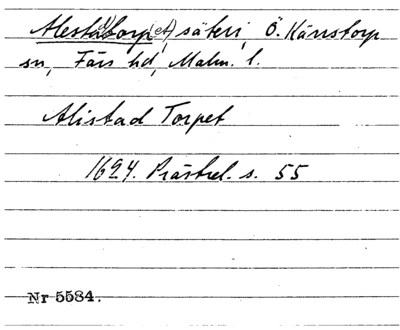 Alestatorp(et) säteri, Ö. Kärrstorp
sn, Färs hd, Malm. l.
Alistad Torpet
1624. Prästrel. s. 55
Nr 5584.